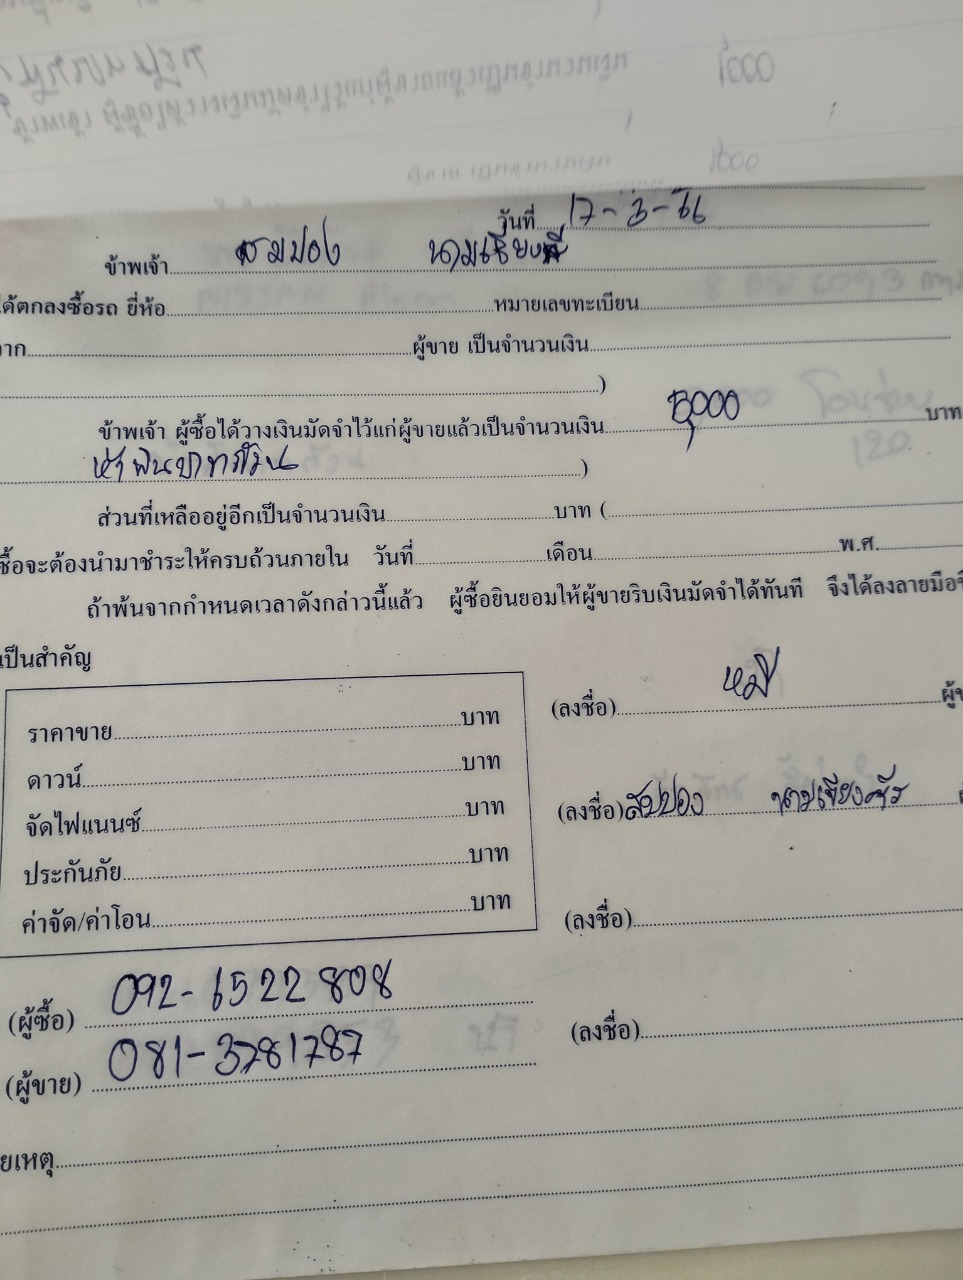 วันที่ 17-3-66
ข้าพเจ้า สมปอง นามเชียง
ได้ตกลงซื้อรถ ยี่ห้อ หมายเลขทะเบียน
จาก ผู้ขาย เป็นจำนวนเงิน
)
ข้าพเจ้า ผู้ซื้อได้วางเงินมัดจำไว้แก่ผู้ขายแล้วเป็นจำนวนเงิน 5,000 บาท
ห้าพันบาทถ้วน )
ส่วนที่เหลืออยู่อีกเป็นจำนวนเงิน บาท (
ซื้อจะต้องนำมาชำระให้ครบถ้วนภายใน วันที่ เดือน พ.ศ.
ถ้าพ้นจากกำหนดเวลาดังกล่าวนี้แล้ว ผู้ซื้อยินยอมให้ผู้ขายริบเงินมัดจำได้ทันที จึงได้ลงลายมือ
เป็นสำคัญ
(ลงชื่อ) หมี
ราคาขาย บาท
ดาวน์ บาท
(ลงชื่อ) สมปอง นามเชียง
จัดไฟแนนซ์ บาท
ประกันภัย บาท
ค่าจัด/ค่าโอน บาท
(ลงชื่อ)
(ผู้ซื้อ) 092-6522808
(ลงชื่อ)
(ผู้ขาย) 081-3781787
ยเหตุ